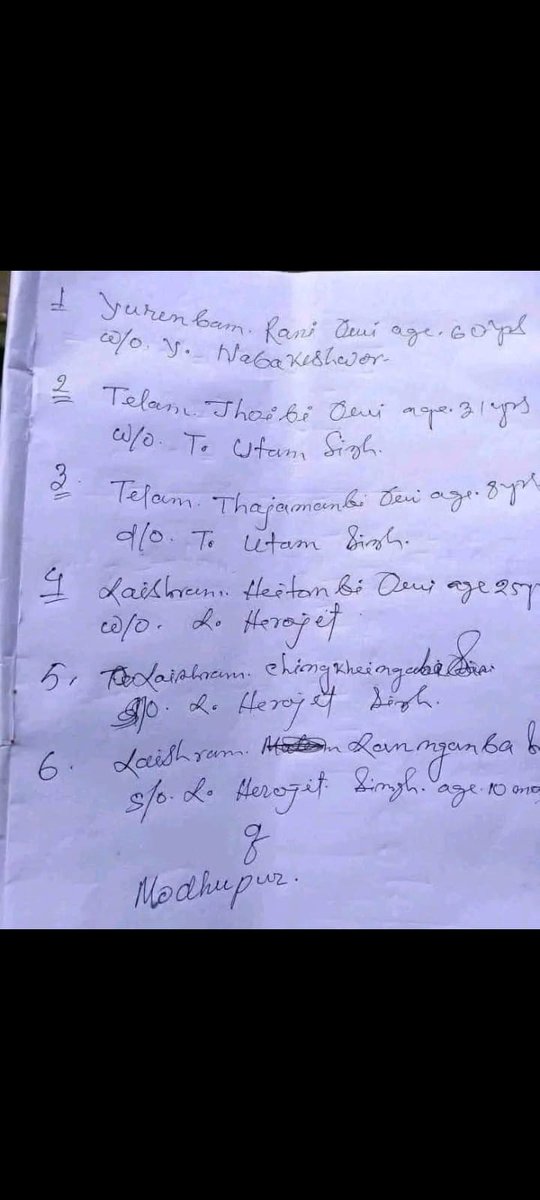 1 Yurenbam. Rani Devi age. 60 yrs
w/o. Y. Nabakeshwor
2 Telam Thoibi Devi age. 31 yrs
w/o. To Utam Singh.
3. Telam. Thajamanbi Devi age. 8 yrs
d/o. To Utam Singh.
4 Laishram. Heitonbi Devi age 25 y
w/o. L. Herojet
5. Laishram. Chingkheinganbi
L. Herojet Singh.
6. Laishram. Lamnganba
s/o. L. Herojit Singh. age. 10 mo
of
Modhupur.